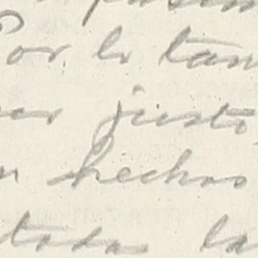 Por lo tan
justo,
hechos
todas la